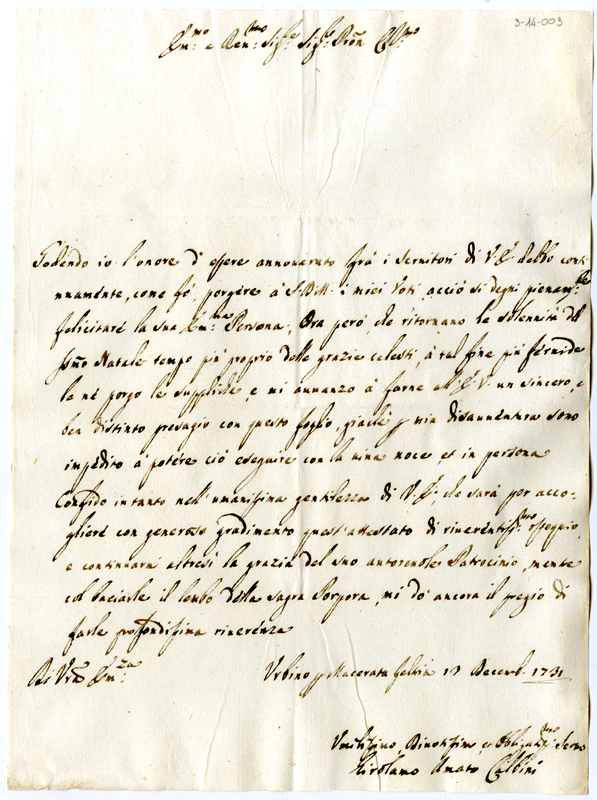 3-14-003
Em:mo e Ren:mo Sig:re Sig:re Pron Col:mo
Godendo io l'onore d'essere annoverato frà i servitori di V. E: debbo conti-
nuamente, come fó, porgere à S. D. M: i miei voti, acció si degni pienam:te
felicitare la sua Em:ma Persona; Ora peró, che ritornano le solennità del
SSmo Natale tempo piú proprio delle grazie celesti, à tal fine piú fervide
le nè porgo le suppliche, e mi avvanzo á farne all' E. V. un sincero, e
ben distinto presagio con questo foglio, giaché p mia disavventura sono
impedito á potere ció eseguire con la viva voce et in persona
Confido intanto nell' umanissima gentilezza di V. E:, che sará per acco-
gliere con generoso gradimento quest' attestato di riverentiss:mo ossequio,
e continuarmi altresi la grazia del suo autorevole Patrocinio, mentre
col baciarle il lembo della Sagra Porpora, mi dó ancora il pregio di
farle profondissima riverenza
Di Vra Em:za
Urbino p Macerata Feltria 13 Decemb. 1731
Umilissimo, Divotissimo, et Obligatiss:mo Servo
Girolamo Amato Calbini